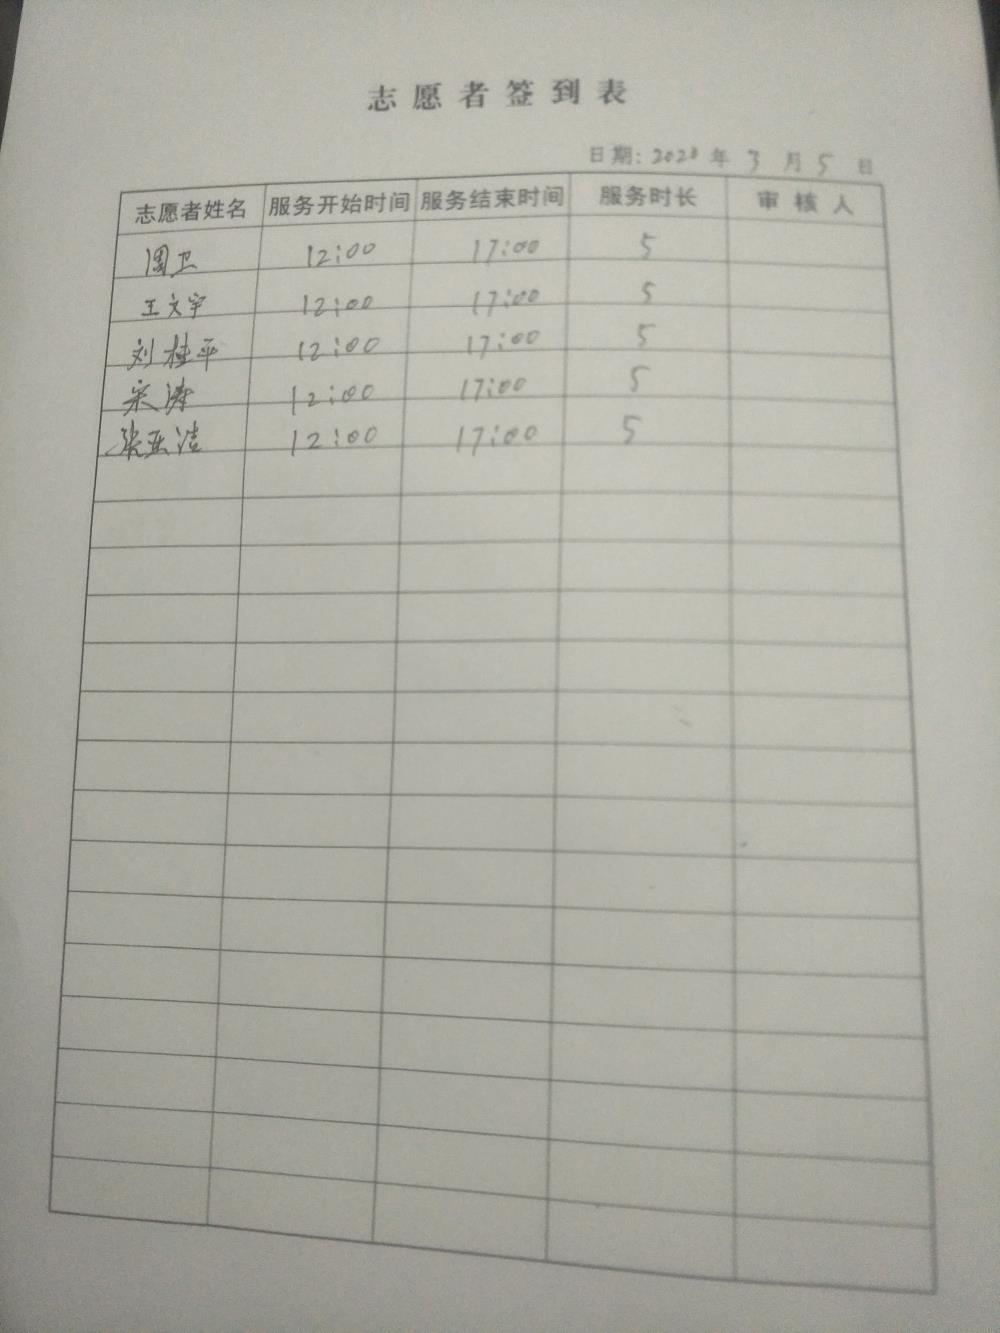 志愿者签到表
日期：2020年3月5日
志愿者姓名 服务开始时间 服务结束时间 服务时长 审核人
周卫 12:00 17:00 5
王文宇 12:00 17:00 5
刘桂平 12:00 17:00 5
宋涛 12:00 17:00 5
张亚洁 12:00 17:00 5